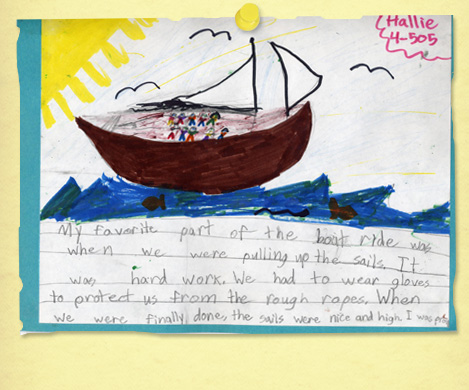 Hallie
4-505
My favorite part of the boat ride was
when we were pulling up the sails. It
was hard work. We had to wear gloves
to protect us from the rough ropes. When
we were finally done, the sails were nice and high. I was